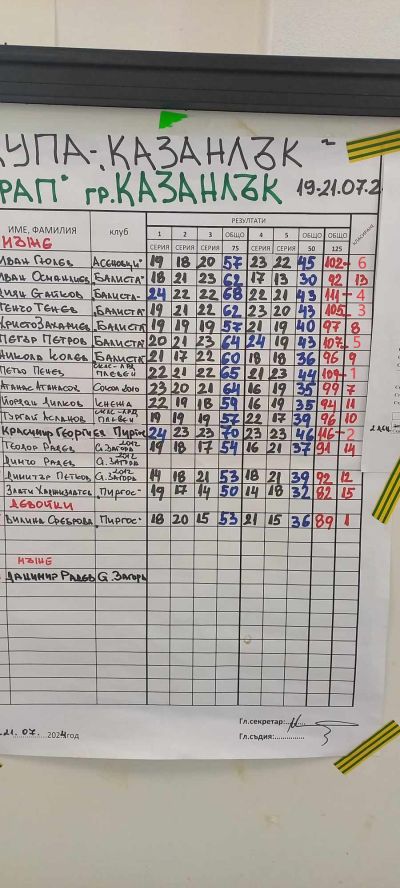 КУПА - КАЗАНЛЪК"
ТРАП" гр. КАЗАНЛЪК 19-21.07.2
ИМЕ, ФАМИЛИЯ клуб РЕЗУЛТАТИ КЛАСИРАНЕ
1 2 3 ОБЩО 4 5 ОБЩО ОБЩО
СЕРИЯ СЕРИЯ СЕРИЯ 75 СЕРИЯ СЕРИЯ 50 125
МЪЖЕ
19 18 20 57 23 22 45 102 6
"БАЛИСТА" 18 21 23 62 17 13 30 92 13
"БАЛИСТА" 24 22 22 68 22 21 43 111 4
ГЕНЧО ГЕНЕВ "БАЛИСТА" 19 21 22 62 23 20 43 105 3
"БАЛИСТА" 19 19 19 57 21 19 40 97 8
ПЕТЪР ПЕТРОВ "БАЛИСТА" 20 21 23 64 24 19 43 107 5
НИКОЛА КОЛЕВ "БАЛИСТА" 21 17 22 60 18 18 36 96 9
ПЕТЬО ПЕНЕВ ПЛЕВЕН 22 21 22 65 21 23 44 109 1
АТАНАС АТАНАСОВ 23 20 21 64 16 19 35 99 7
ЙОРДАН КНЕЖА 22 19 18 59 16 19 35 94 11
АСПАНОВ ПЛЕВЕН 19 19 19 57 22 17 39 96 10
КРАСИМИР ГЕОРГИЕВ ПИРГОС 24 23 23 70 23 23 46 116 2
ТЕОДОР РАДЕВ С. ЗАГОРА 19 18 17 54 16 21 37 91 14
ДИНЧО РАДЕВ С. ЗАГОРА
ДИМИТЪР ПЕТКОВ С. ЗАГОРА 14 18 21 53 18 21 39 92 12
"ПИРГОС" 19 17 14 50 14 18 32 82 15
ДЕВОЙКИ
"ПИРГОС" 18 20 15 53 21 15 36 89 1
МЪЖЕ
РАДЕВ С. ЗАГОРА
21.07. 2024 год
Гл.секретар:
Гл.съдия: